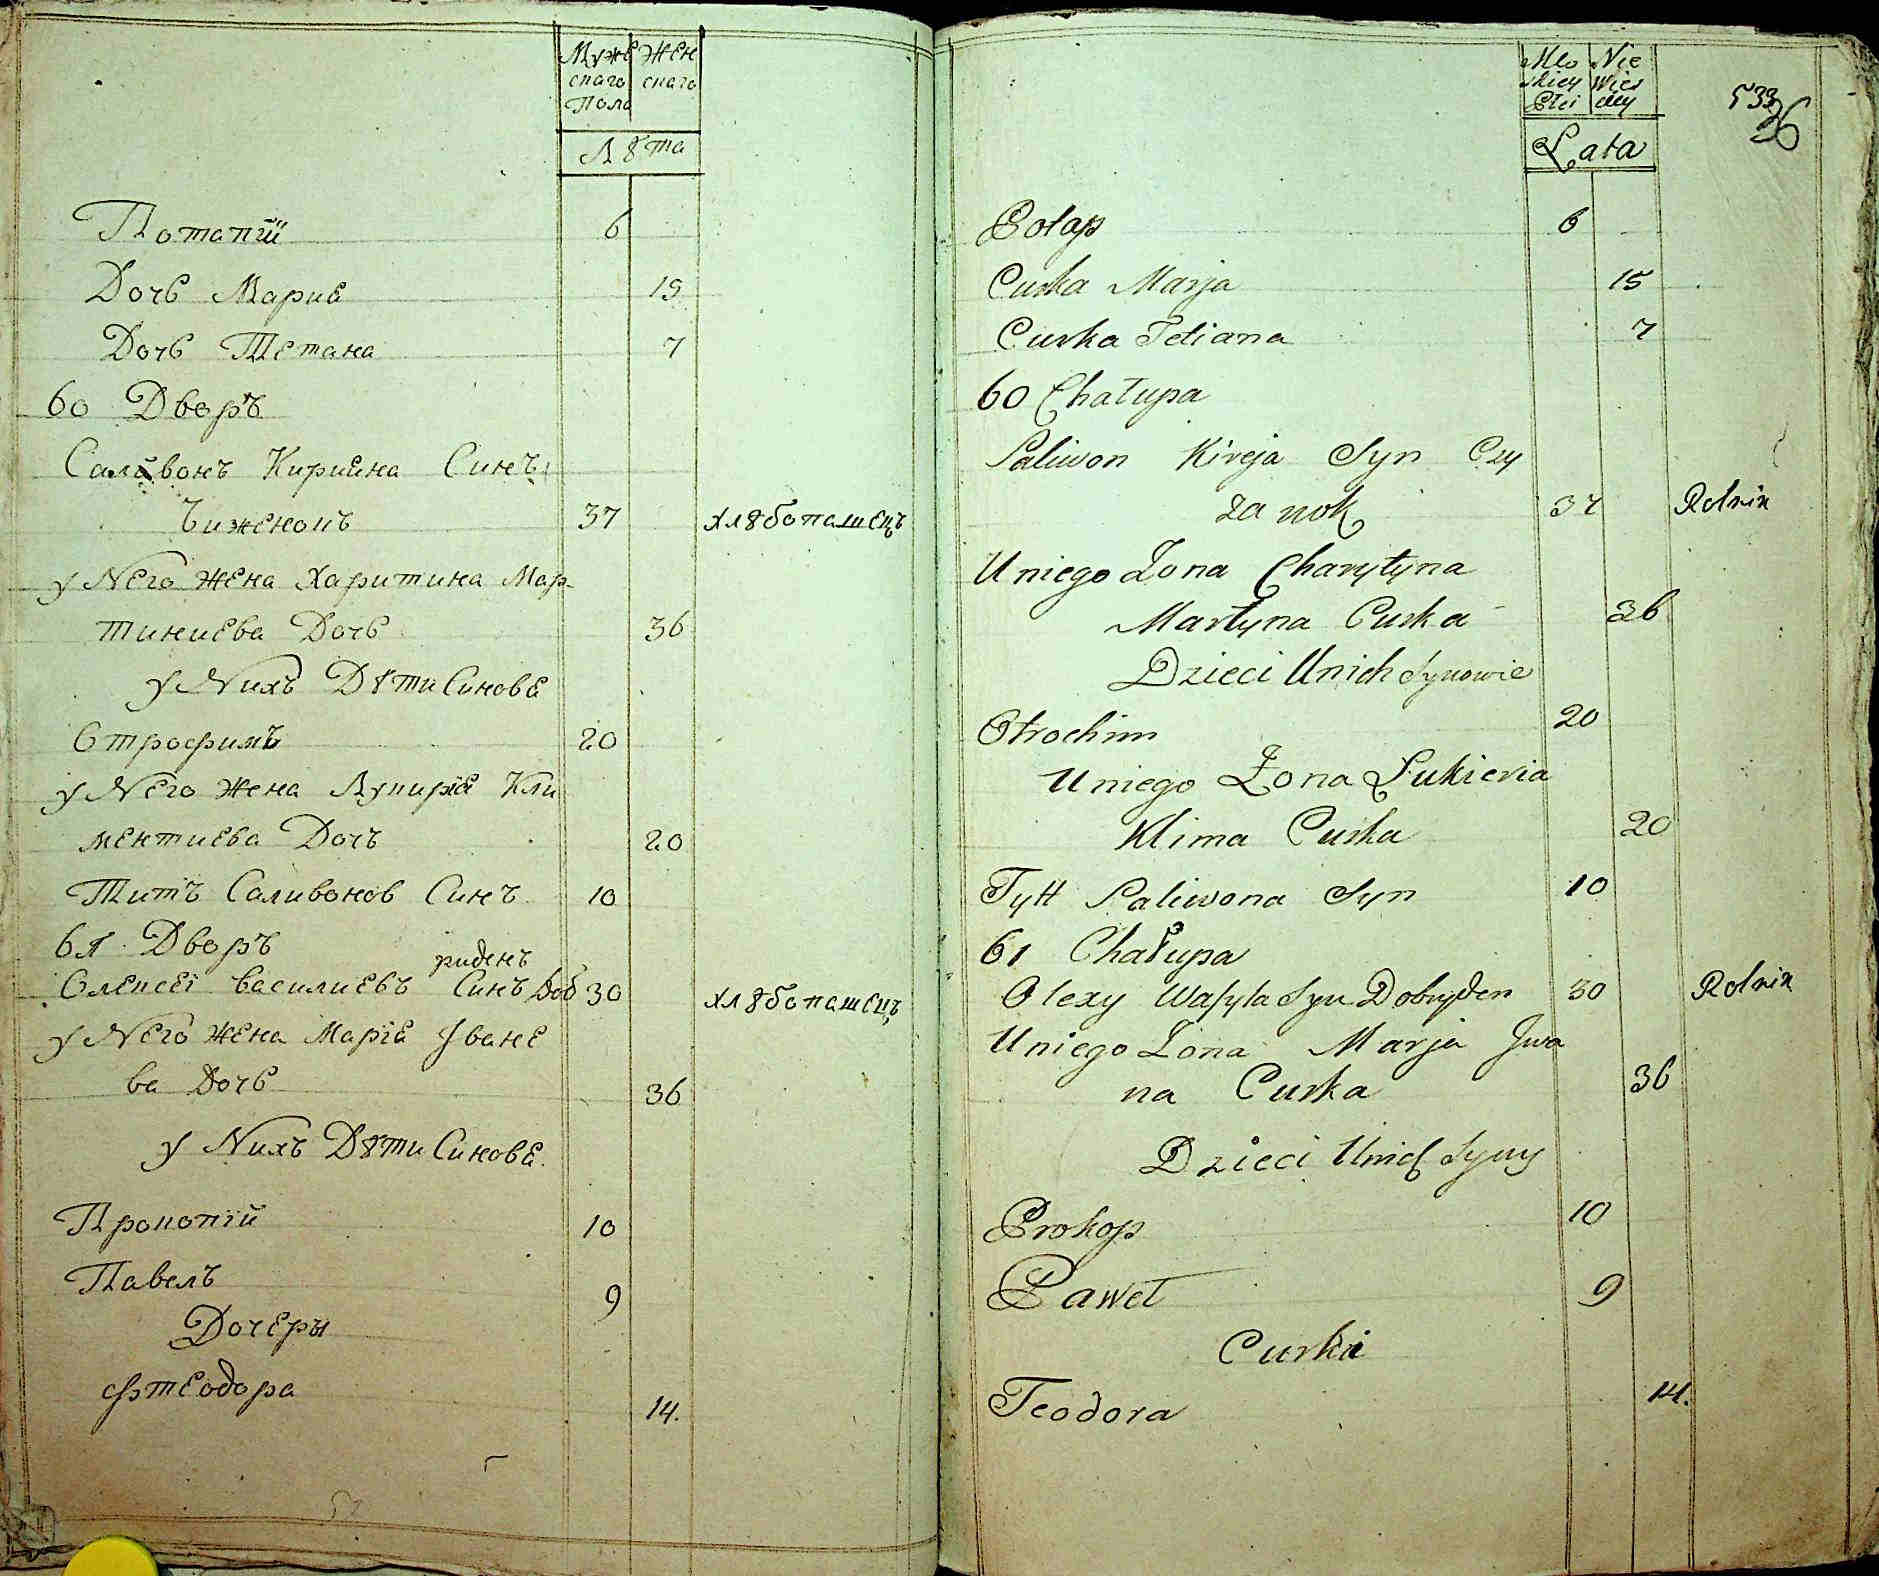 Муже Жен
скаго скаго
Пола
Лѣта
Потапій 6
Дочь Марие 15
Дочь Тетана 7
60 Дворъ
Саливонъ Кирийна Синъ
Чиженокъ 37 хлѣбопашецъ
у Него жена Харитина Мар
тиниева Дочь 36
у Нихъ Дѣти Синове
Отрофимъ 20
у Него жена Лукирiе Кли
ментиева Дочъ 20
Титъ Саливонов Синъ 10
61 Дворъ
риденъ
Олексеi василиевъ Синъ Доб 30 хлѣбопашецъ
у Него жена Марiе Іване
ва Дочь 36
у Нихъ Дѣти Синове
Прокопiй 10
Павелъ 9
Дочеры
Фтеодора 14.
Mło Nie
skiey Wies
Płci ciey
Lata
533
36
Potap 6
Curka Marja 15
Curka Tetiana 7
60 Chałupa
Saliwon Kireja Syn Czy
żanok 37 Rolnik
U niego Żona Charytyna
Martyna Curka 36
Dzieci Unich Synowie
Otrochim 20
U niego Żona Łukieria
Klima Curka 20
Tytt Saliwona Syn 10
61 Chałupa
Olexy Wasyla Syn Dobryden 30 Rolnik
U niego Żona Marja Jwa
na Curka 36
Dzieci Unich Syny
Prokop 10
Paweł 9
Curki
Teodora 14.